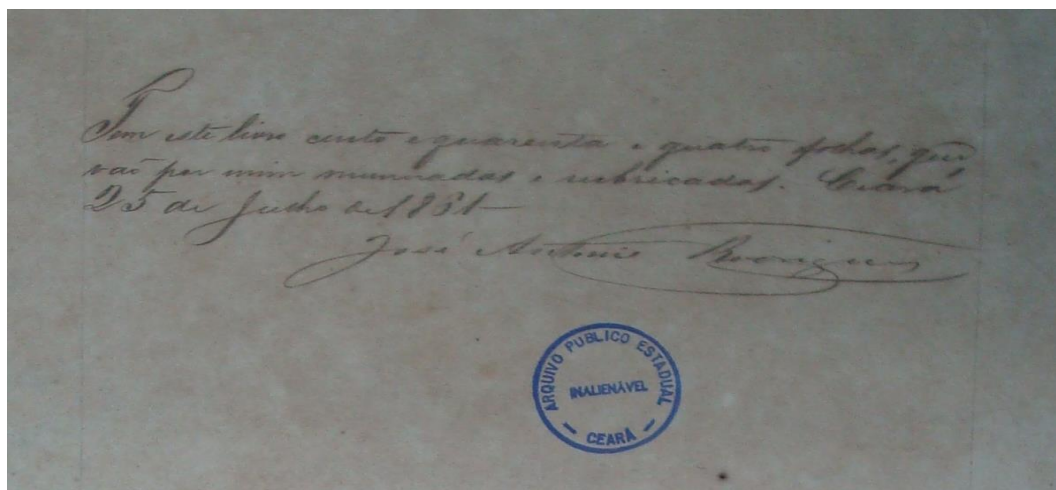 Tem este livro cento e quarenta e quatro folhas, que
vaõ por mim numeradas e rubricadas. Ceará
25 de Julho de 1861
José Antonio Rodrigues
ARQUIVO PUBLICO ESTADUAL
INALIENÁVEL
— CEARÁ —